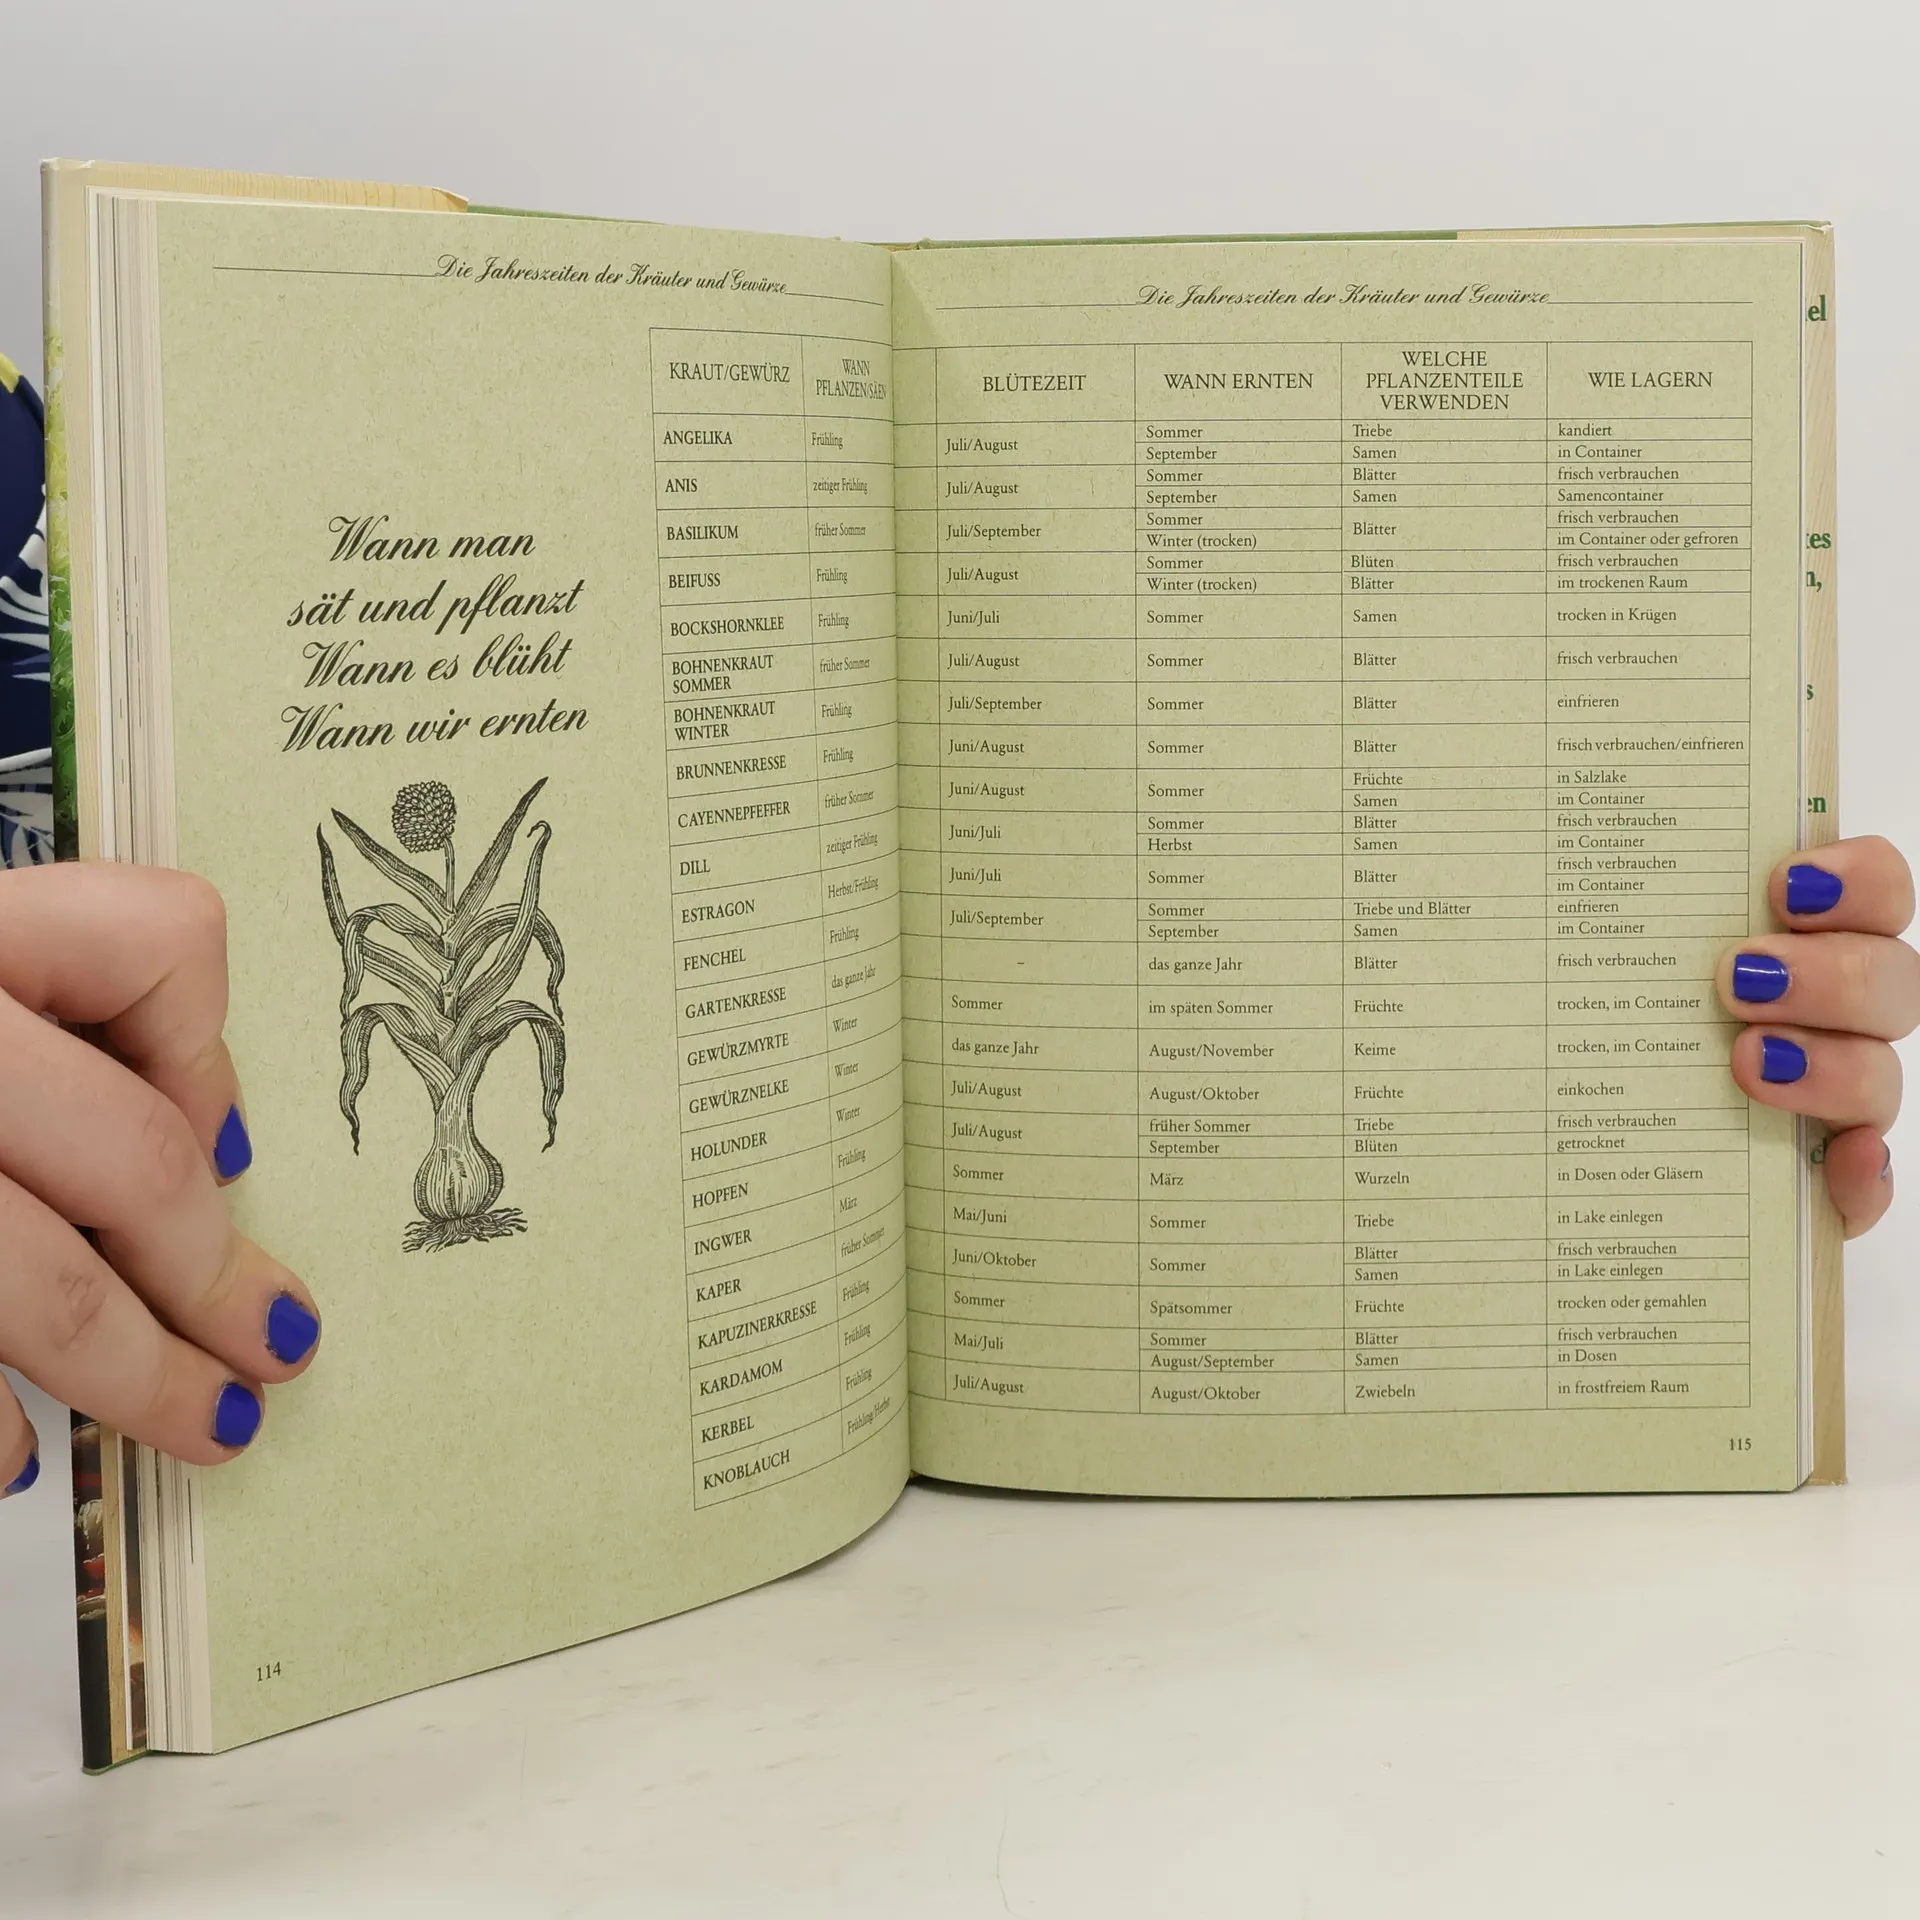 Die Jahreszeiten der Kräuter und Gewürze
Wann man
sät und pflanzt
Wann es blüht
Wann wir ernten
KRAUT/GEWÜRZ WANN PFLANZEN/SÄEN
ANGELIKA Frühling
ANIS zeitiger Frühling
BASILIKUM früher Sommer
BEIFUSS Frühling
BOCKSHORNKLEE Frühling
BOHNENKRAUT SOMMER früher Sommer
BOHNENKRAUT WINTER Frühling
BRUNNENKRESSE Frühling
CAYENNEPFEFFER früher Sommer
DILL zeitiger Frühling
ESTRAGON Herbst/Frühling
FENCHEL Frühling
GARTENKRESSE das ganze Jahr
GEWÜRZMYRTE Winter
GEWÜRZNELKE Winter
HOLUNDER Winter
HOPFEN Frühling
INGWER März
KAPER früher Sommer
KAPUZINERKRESSE Frühling
KARDAMOM Frühling
KERBEL Frühling
KNOBLAUCH Frühling/Herbst
114
Die Jahreszeiten der Kräuter und Gewürze
BLÜTEZEIT WANN ERNTEN WELCHE PFLANZENTEILE VERWENDEN WIE LAGERN
Juli/August Sommer Triebe kandiert
September Samen in Container
Juli/August Sommer Blätter frisch verbrauchen
September Samen Samencontainer
Juli/September Sommer Blätter frisch verbrauchen
Winter (trocken) im Container oder gefroren
Juli/August Sommer Blüten frisch verbrauchen
Winter (trocken) Blätter im trockenen Raum
Juni/Juli Sommer Samen trocken in Krügen
Juli/August Sommer Blätter frisch verbrauchen
Juli/September Sommer Blätter einfrieren
Juni/August Sommer Blätter frisch verbrauchen/einfrieren
Juni/August Sommer Früchte in Salzlake
Samen im Container
Juni/Juli Sommer Blätter frisch verbrauchen
Herbst Samen im Container
Juni/Juli Sommer Blätter frisch verbrauchen
im Container
Juli/September Sommer Triebe und Blätter einfrieren
September Samen im Container
– das ganze Jahr Blätter frisch verbrauchen
Sommer im späten Sommer Früchte trocken, im Container
das ganze Jahr August/November Keime trocken, im Container
Juli/August August/Oktober Früchte einkochen
Juli/August früher Sommer Triebe frisch verbrauchen
September Blüten getrocknet
Sommer März Wurzeln in Dosen oder Gläsern
Mai/Juni Sommer Triebe in Lake einlegen
Juni/Oktober Sommer Blätter frisch verbrauchen
Samen in Lake einlegen
Sommer Spätsommer Früchte trocken oder gemahlen
Mai/Juli Sommer Blätter frisch verbrauchen
August/September Samen in Dosen
Juli/August August/Oktober Zwiebeln in frostfreiem Raum
115